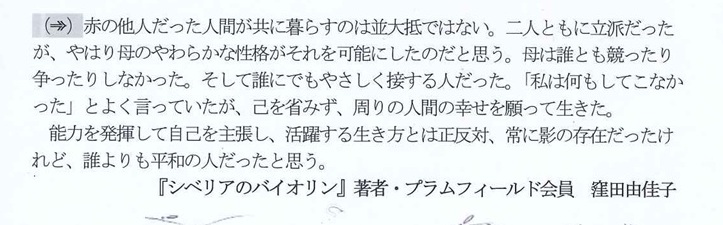 (⇒) 赤の他人だった人間が共に暮らすのは並大抵ではない。二人ともに立派だった
が、やはり母のやわらかな性格がそれを可能にしたのだと思う。母は誰とも競ったり
争ったりしなかった。そして誰にでもやさしく接する人だった。「私は何もしてこなか
った」とよく言っていたが、己を省みず、周りの人間の幸せを願って生きた。
能力を発揮して自己を主張し、活躍する生き方とは正反対、常に影の存在だったけ
れど、誰よりも平和の人だったと思う。
『シベリアのバイオリン』著者・プラムフィールド会員 窪田由佳子